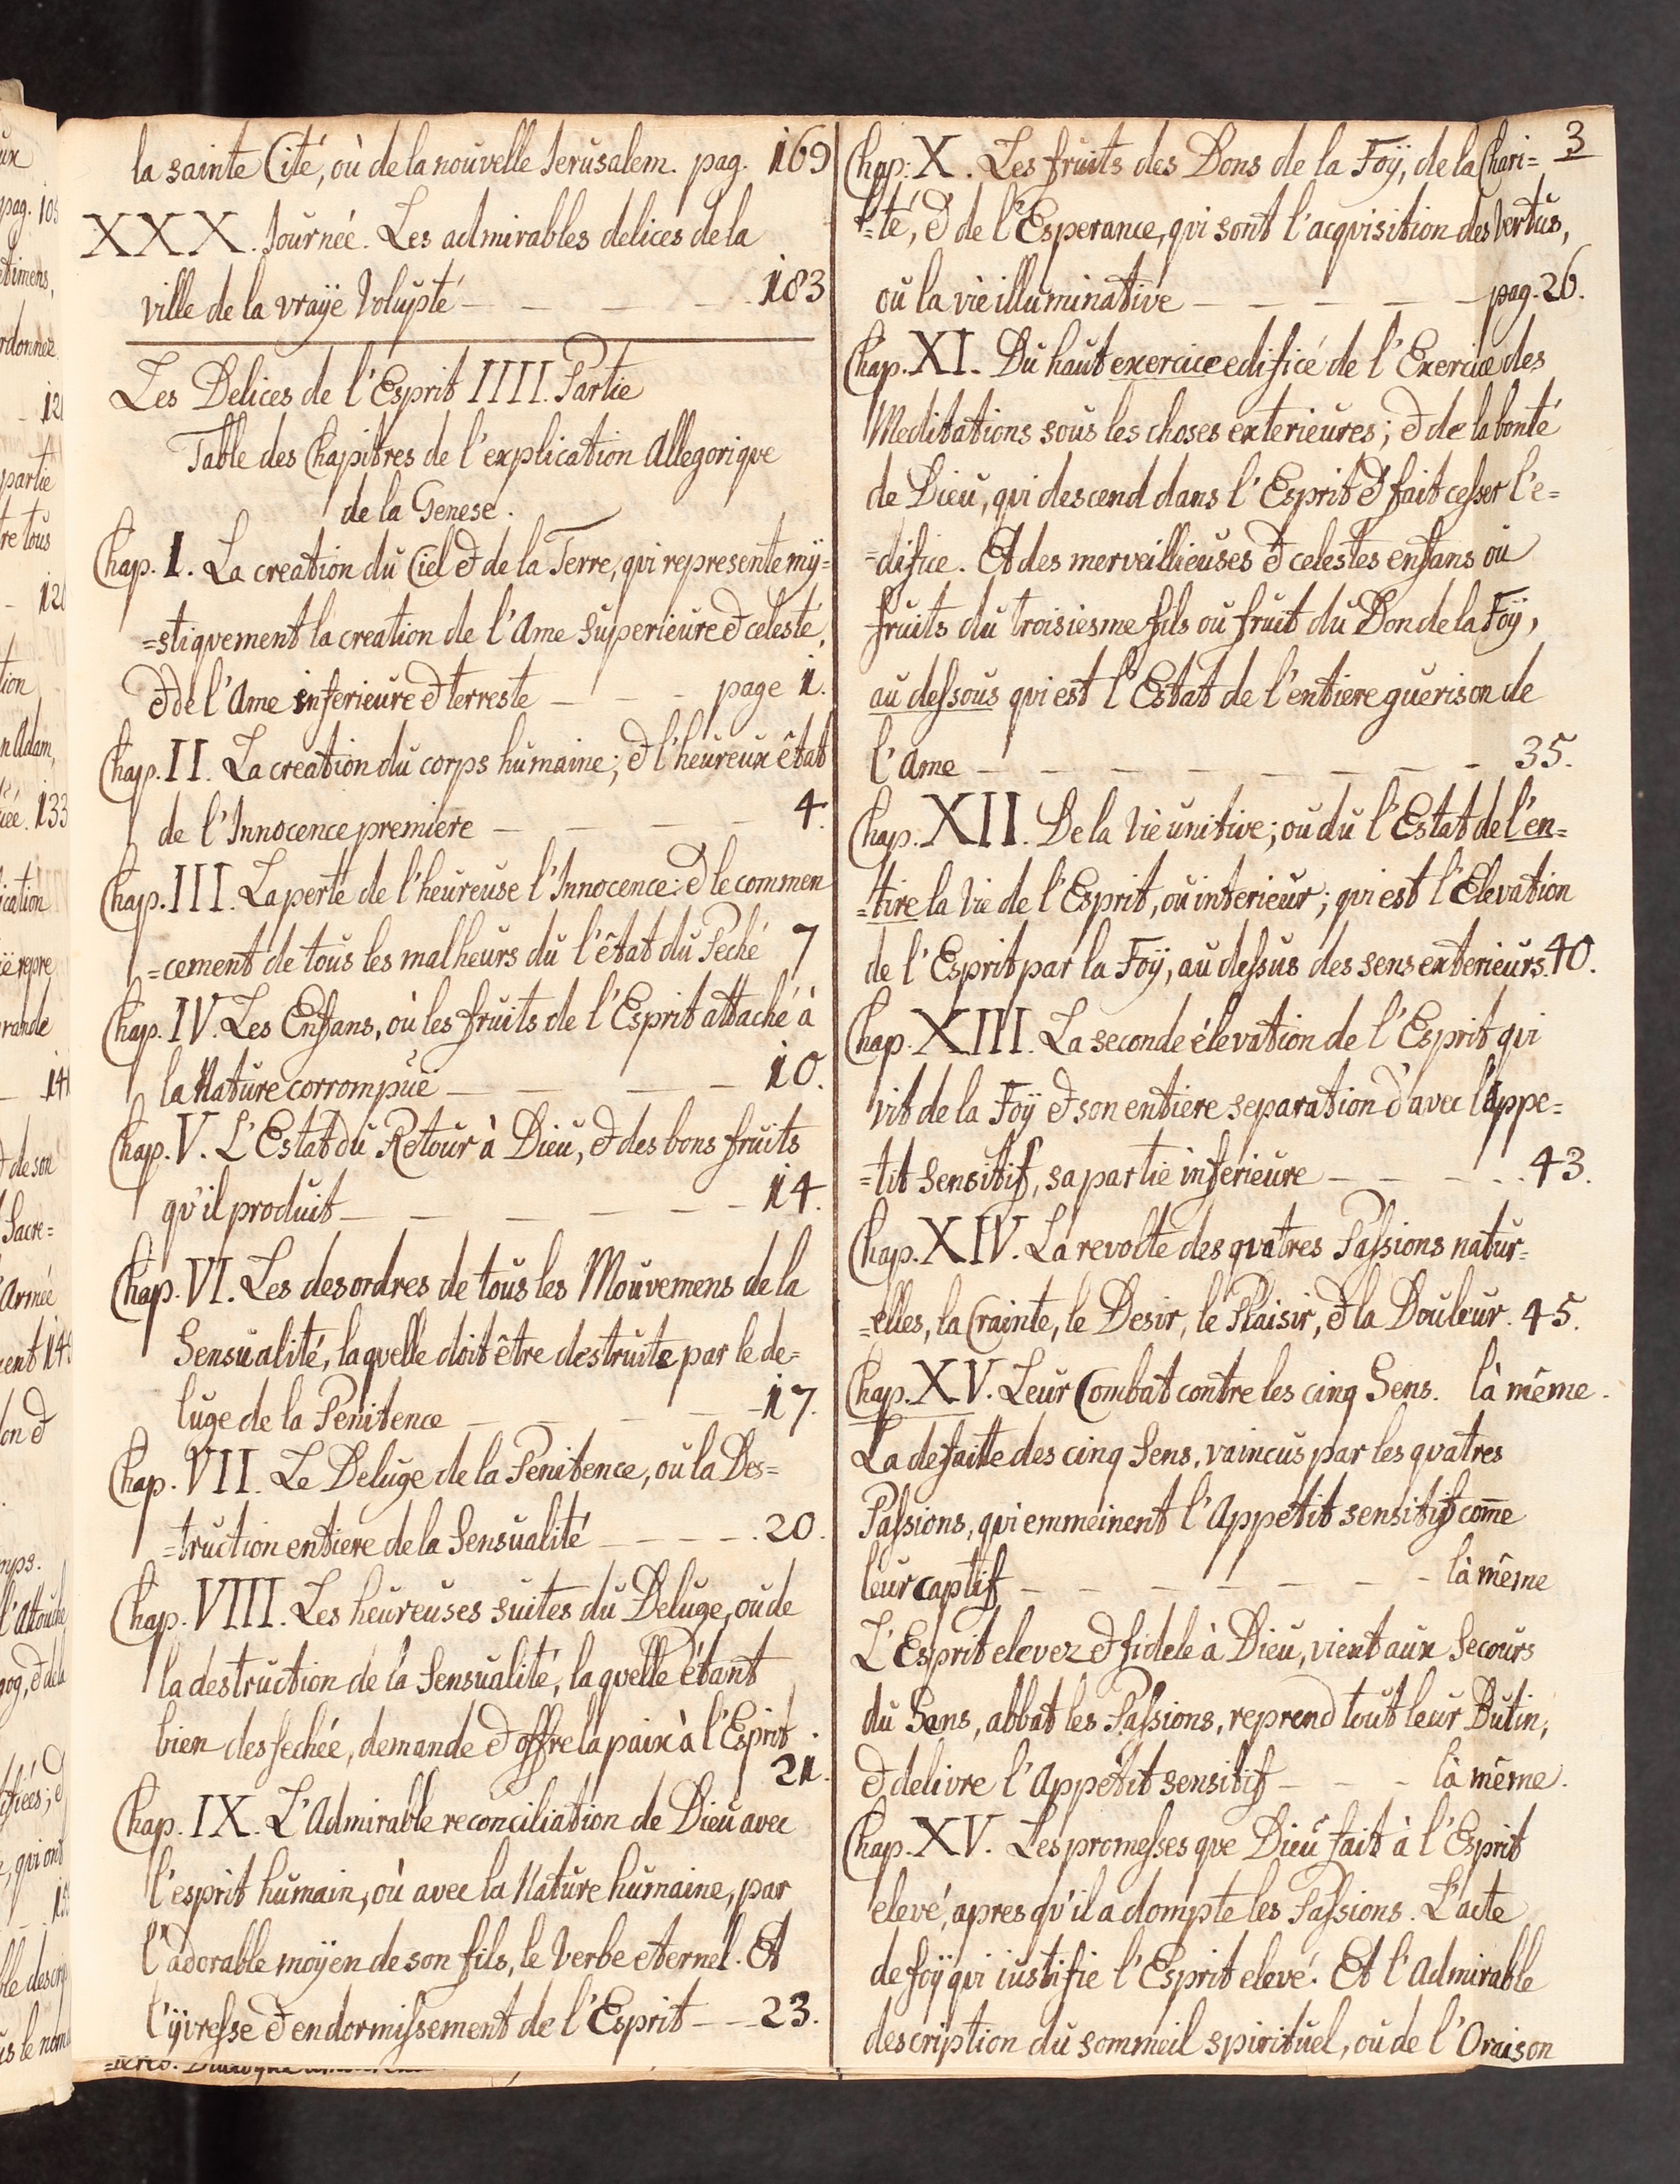 la sainte Cité, où de la nouvelle Jerusalem. pag. 169
XXX. Journeé. Les admirables delices de la
ville de la vraÿe Volupté — — — — 183
Les Delices de l'Esprit IIII. Partie
Table des Chapitres de l'explication Allegorique
de la Genese.
Chap. I. La creation du Ciel & de la Terre, qui represente mÿ=
=stiquement la creation de l'Ame superieure & celeste,
& de l'Ame inferieure & terreste — — — page 1.
Chap. II. La creation du corps humaine; & l'heureux êtat
de l'Innocence premiere — — — — 4.
Chap. III. La perte de l'heureuse l'Innocence: & le commen
=cement de tous les malheurs du l'êtat du Peché 7
Chap. IV. Les Enfans, où les fruits de l'Esprit attaché à
la Nature corrompuë — — — — 10.
Chap. V. L'Estat du Retour à Dieu, & des bons fruits
qu'il produit — — — — — — 14.
Chap. VI. Les desordres de tous les Mouvemens de la
Sensualité, laquelle doit être destruite par le de=
luge de la Penitence — — — — 17.
Chap. VII. Le Deluge de la Penitence, ou la Des=
=truction entiere de la Sensualité — — — — 20.
Chap. VIII. Les heureuses suites du Deluge, ou de
la destruction de la Sensualité, laquelle étant
bien dessechée, demande & offre la paix à l'Esprit
21.
Chap. IX. L'Admirable reconciliation de Dieu avec
l'esprit humain, où avec la Nature humaine, par
l'adorable moÿen de son fils, le Verbe eternel. Et
l'ÿvresse & endormissement de l'Esprit — — 23.
3
Chap. X. Les fruits des Dons de la Foÿ, de la Chari=
=té, & de l'Esperance, qui sont l'acquisition des Vertus,
ou la vie illuminative — — — — — pag. 26.
Chap. XI. Du haut exercice edificé de l'Exercice des
Meditations sous les choses exterieures; & de la bonté
de Dieu, qui descend dans l'Esprit & fait cesser l'e=
=difice. Et des merveillieuses & celestes enfans ou
fruits du troisiesme fils ou fruit du Don de la Foÿ,
au dessous qui est l'Estat de l'entiere guerison de
l'Ame — — — — — — — — 35.
Chap. XII. De la Vie unitive; ou du l'Estat de l'en=
=tire la Vie de l'Esprit, ou interieur; qui est l'Elevation
de l'Esprit par la Foÿ, au dessus des sens exterieurs. 40.
Chap. XIII. La seconde élevation de l'Esprit qui
vit de la Foÿ & son entiere separation d'avec l'Appe=
=tit Sensitif, sa partie inferieure — — — — 43.
Chap. XIV. La revolte des quatres Passions natur=
=elles, la Crainte, le Desir, le Plaisir, & la Douleur. 45.
Chap. XV. Leur Combat contre les cinq Sens. là même.
La defaitte des cinq Sens, vaincus par les quatres
Passions, qui emmeinent l'Appetit sensitif come
leur captif — — — — — — — — là même
L'Esprit elevez & fidele à Dieu, vient aux Secours
du Sens, abbat les Passions, reprend tout leur Butin,
& delivre l'Appetit sensitif — — — là même.
Chap. XV. Les promesses que Dieu fait à l'Esprit
elevé, apres qu'il a dompte les Passions. L'acte
de foÿ qui iustifie l'Esprit elevé. Et l'Admirable
description du sommeil spirituel, ou de l'Oraison